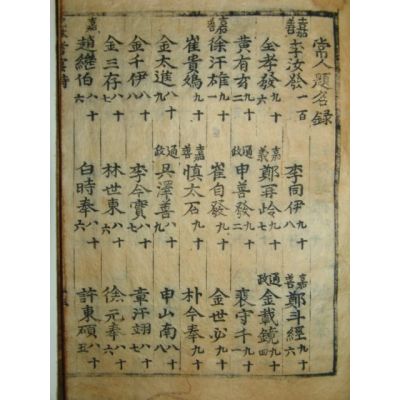 常人題名錄
嘉善 李汝發 一百 李同伊 九十八 嘉善 鄭斗經 九十六
全孝發 九十六 嘉義 鄭再岭 九十 通政 金載鏡 九十四
黃有玄 九十二 申善發 九十二 裵守千 九十一
嘉善 徐汗雄 九十一 崔自發 九十 金世必 九十
崔貴 九十 嘉善 慎太石 九十 朴今奉 九十
金太進 八十九 通政 吳澤善 八十 申山南 八十八
金千伊 八十八 李今實 八十七 章汗翊 八十七
金三存 八十 林世東 八十六 徐元奉 八十六
嘉 趙繼伯 八十六 白時奉 八十六 許東碩 八十五